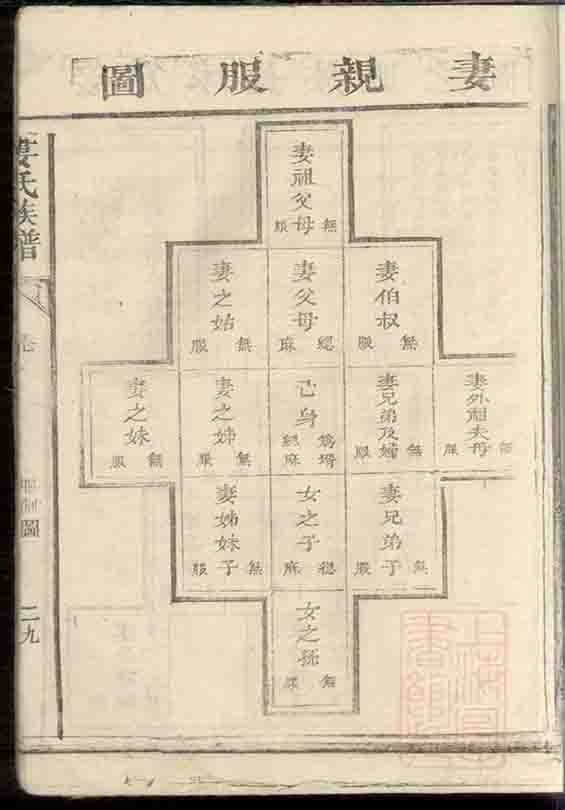 妻親服圖
妻祖父母
無服
妻伯叔
無服
妻父母
緦麻
妻之姑
無服
妻外祖父母
無服
妻兄弟及婦
無服
己身
為壻緦麻
妻之姊
無服
妻之妹
無服
妻兄弟子
無服
女之子
緦麻
妻姊妹子
無服
女之孫
無服
姜氏族譜
圖
二九
上海
書館